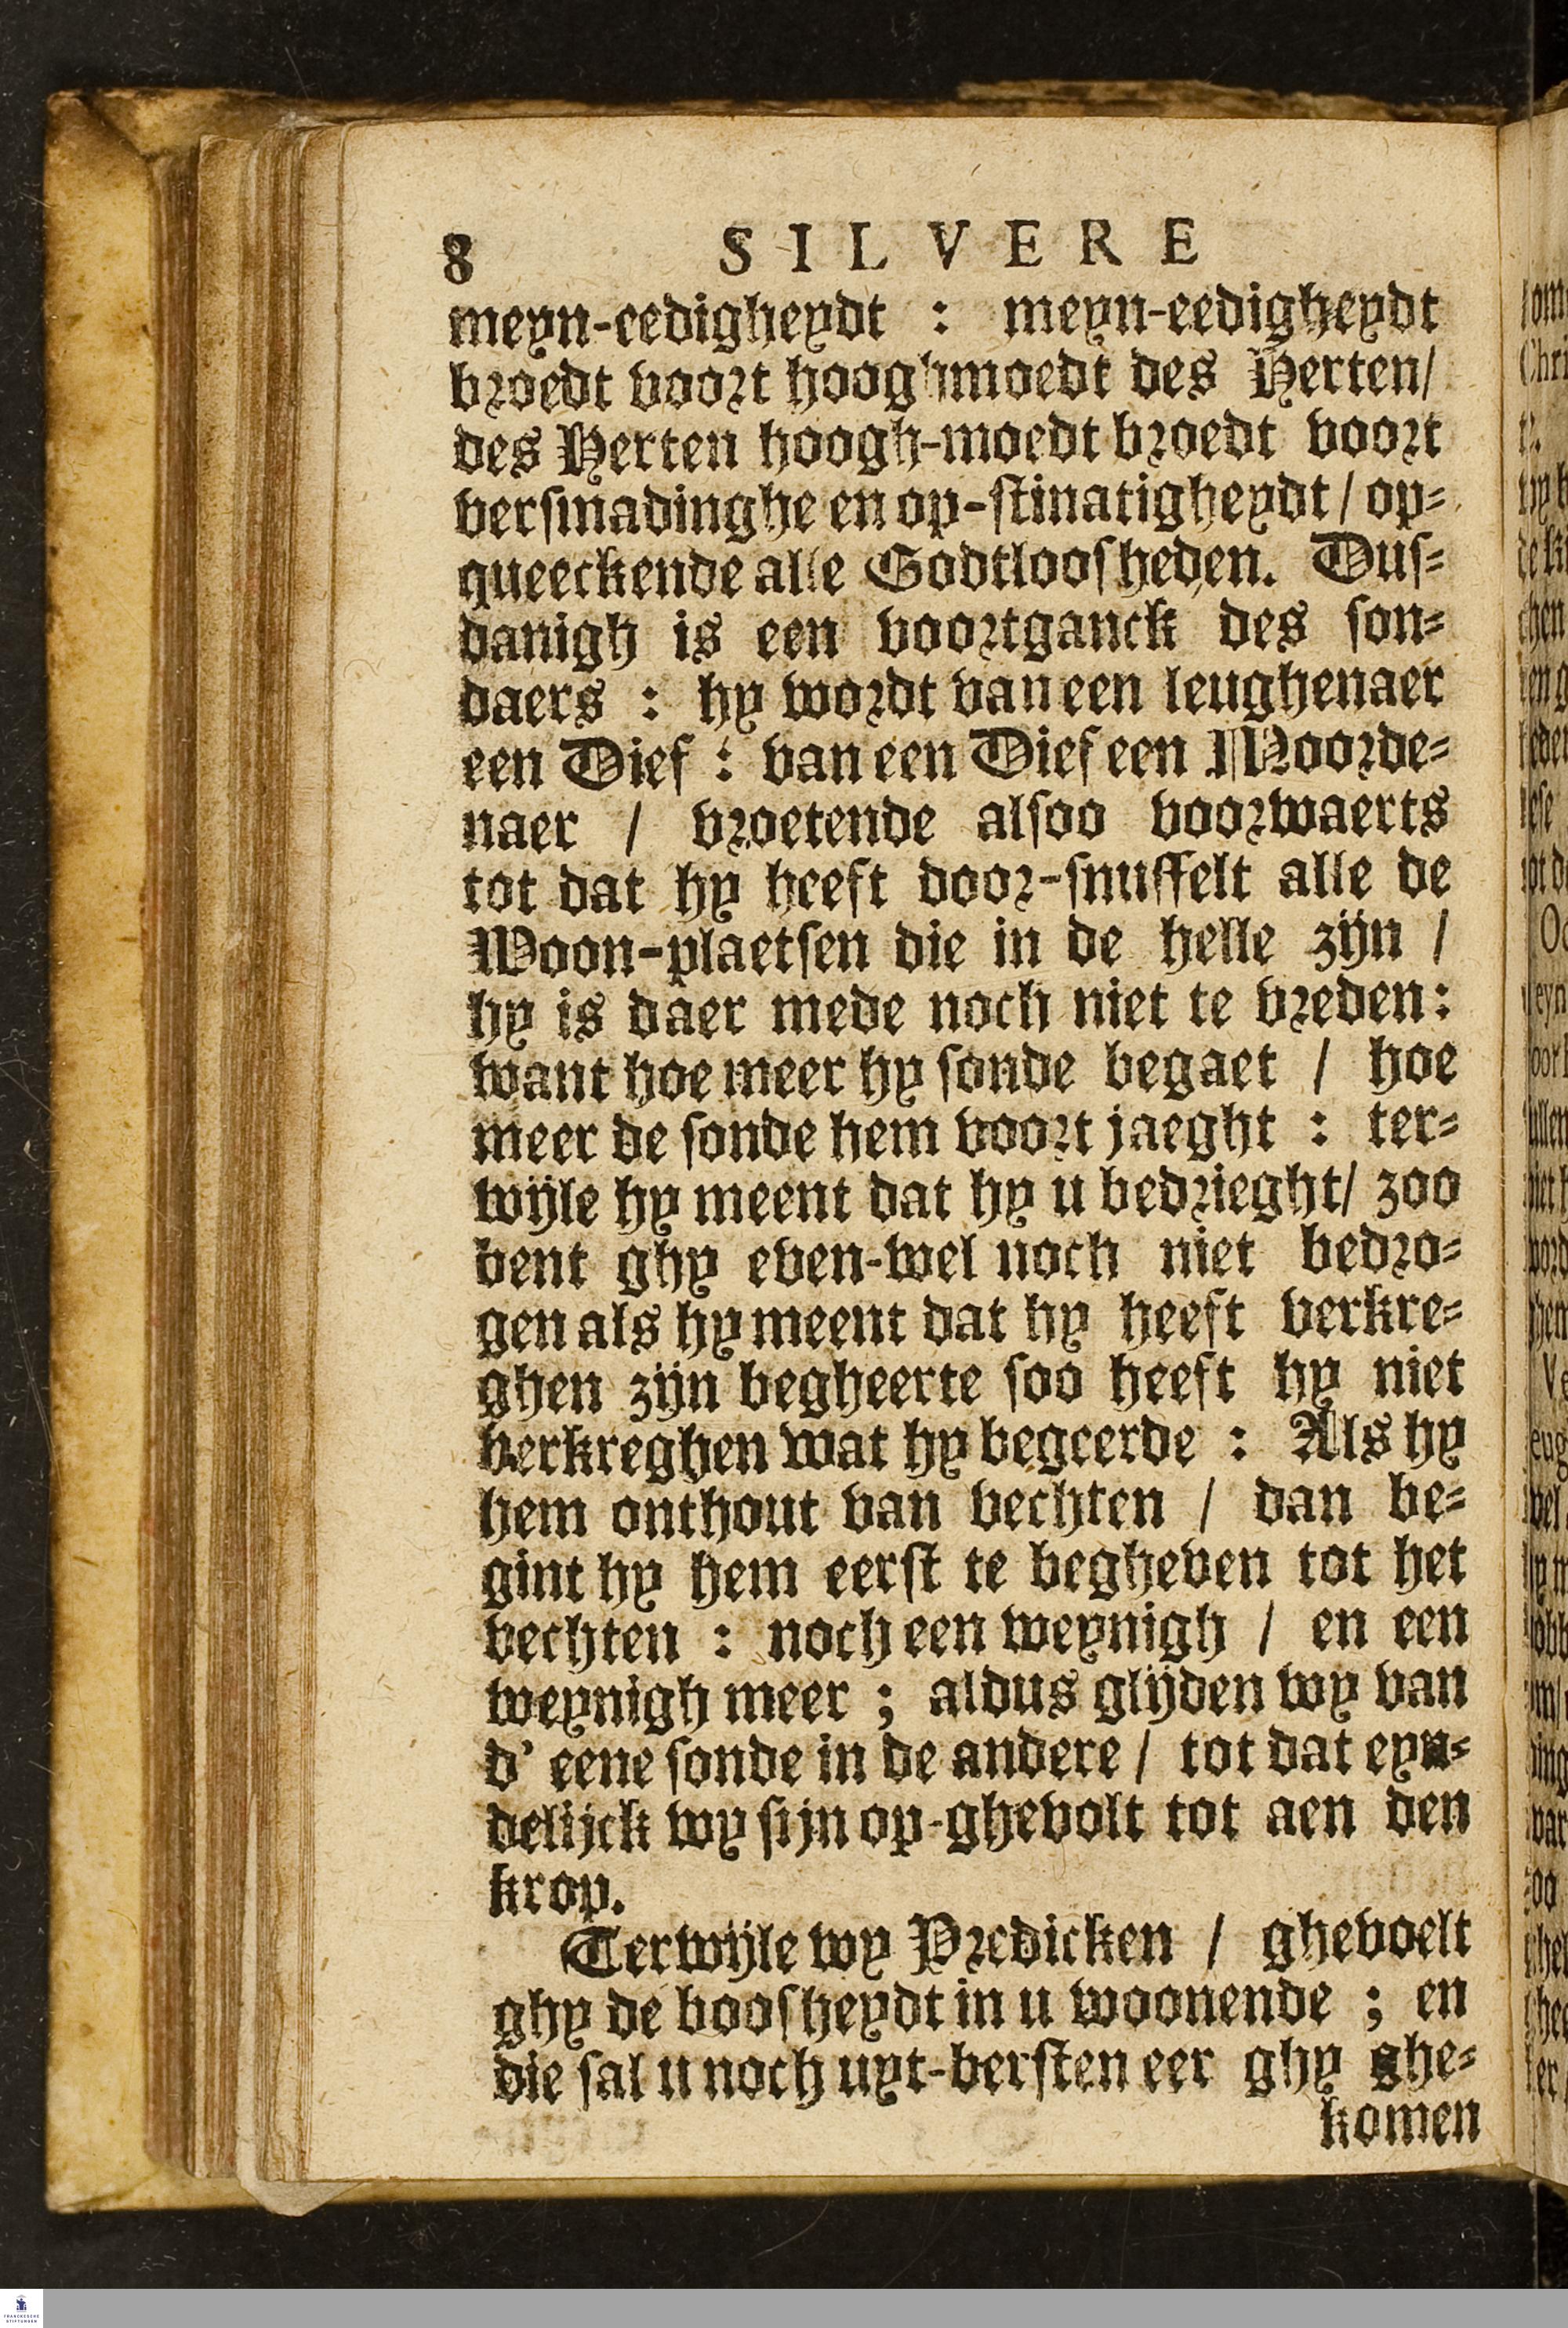 8 SILVERE
meyn-eedigheydt : meyn-eedigheydt
broedt voort hooghmoedt des Herten/
des Herten hoogh-moedt broedt voort
versmadinghe en op-stinatigheydt / op=
queeckende alle Godtloosheden. Dus=
danigh is een voortganck des son=
daers : hy wordt van een leughenaer
een Dief : van een Dief een Moorde=
naer / vroetende alsoo voorwaerts
tot dat hy heeft door-snuffelt alle de
Woon-plaetsen die in de helle zijn /
hy is daer mede noch niet te vreden:
want hoe meer hy sonde begaet / hoe
meer de sonde hem voort jaeght : ter=
wijle hy meent dat hy u bedrieght/ zoo
bent ghy even-wel noch niet bedro=
gen als hy meent dat hy heeft verkre=
ghen zijn begheerte soo heeft hy niet
verkreghen wat hy begeerde : Als hy
hem onthout van vechten / dan be=
gint hy hem eerst te begheven tot het
vechten : noch een weynigh / en een
weynigh meer ; aldus glijden wy van
d' eene sonde in de andere / tot dat eyn=
delijck wy sijn op-ghevolt tot aen den
krop.
Terwijle wy Predicken / ghevoelt
ghy de boosheydt in u woonende ; en
die sal u noch uyt-bersten eer ghy ghe=
komen
FRANCKESCHE
STIFTUNGEN